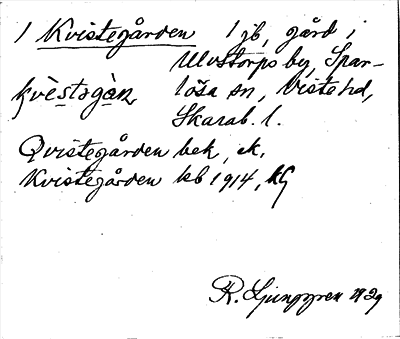 1 Kvistegården 1 jb, gård i
Ulvstorps by, Spar-
kvèstogàn, lösa sn, Viste hd,
Skarab. l.
Qvistegården bek, ek.
Kvistegården kb 1914, kG
R. Ljunggren 1929